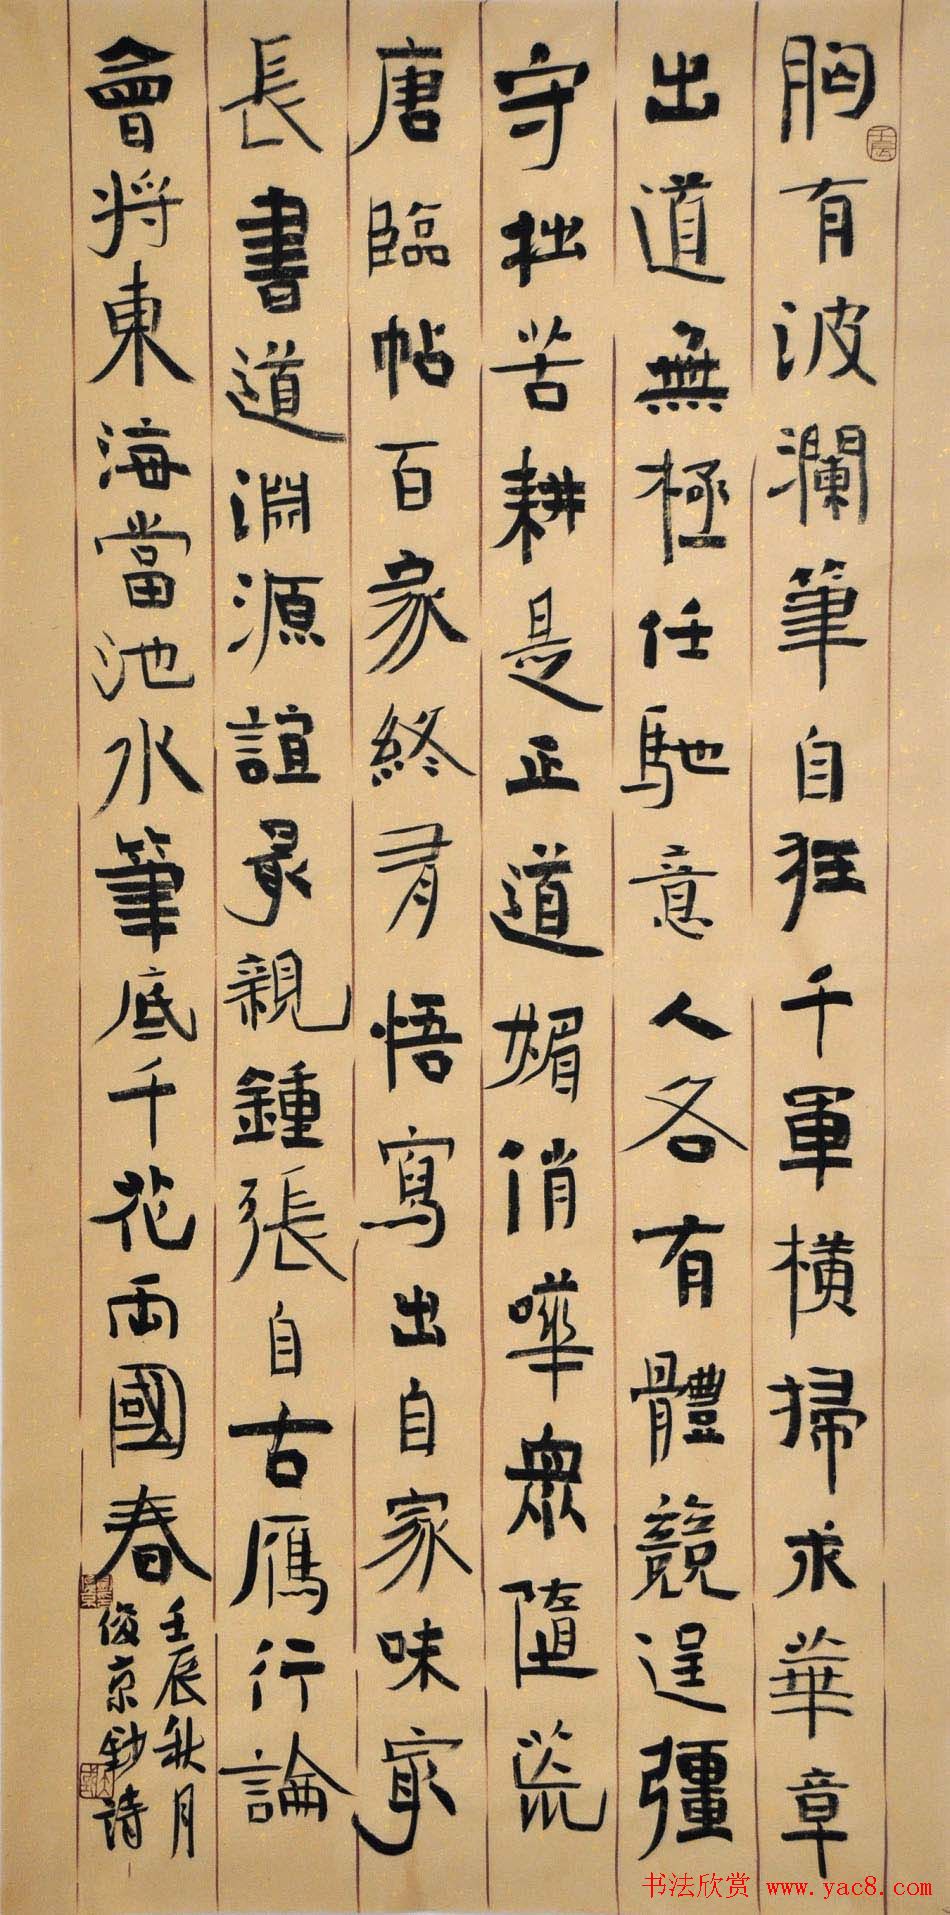 胸有波瀾筆自狂千軍橫掃求華章
出道無極任馳意人各有體競逞彊
守拙苦耕是正道媚俏嘩眾隨荒
唐臨帖百家終有悟寫出自家味最
長書道淵源誼最親鍾張自古雁行論
會將東海當池水筆底千花兩國春
壬辰秋月
俊京鈔詩
书法欣赏 www.yac8.com